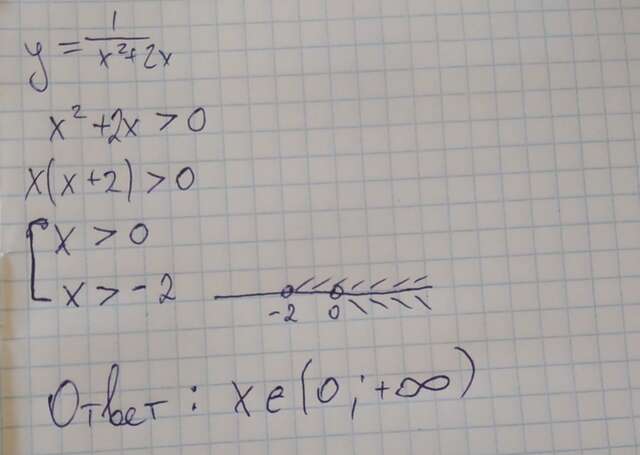 y = 1/(x²+2x)
x² + 2x > 0
x(x+2) > 0
[ x > 0
x > -2
-2 0
Ответ: x∈(0;+∞)